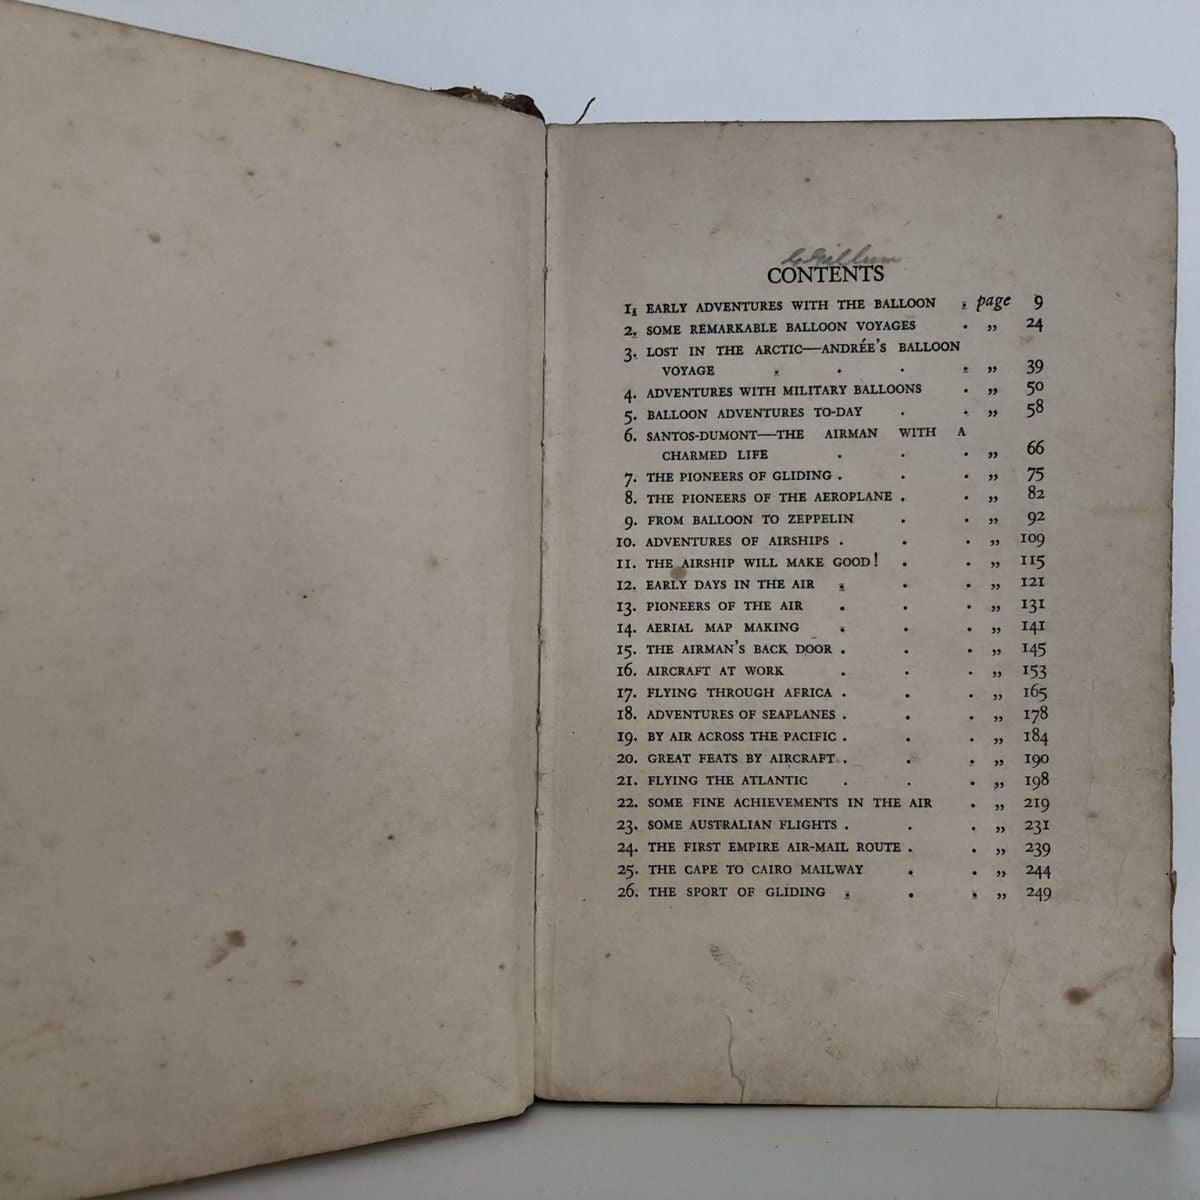 CONTENTS
1. EARLY ADVENTURES WITH THE BALLOON . page 9
2. SOME REMARKABLE BALLOON VOYAGES . „ 24
3. LOST IN THE ARCTIC—ANDRÉE'S BALLOON
VOYAGE . . . . „ 39
4. ADVENTURES WITH MILITARY BALLOONS . „ 50
5. BALLOON ADVENTURES TO-DAY . . „ 58
6. SANTOS-DUMONT—THE AIRMAN WITH A
CHARMED LIFE . . . „ 66
7. THE PIONEERS OF GLIDING . . . „ 75
8. THE PIONEERS OF THE AEROPLANE . . „ 82
9. FROM BALLOON TO ZEPPELIN . . „ 92
10. ADVENTURES OF AIRSHIPS . . . „ 109
11. THE AIRSHIP WILL MAKE GOOD! . . „ 115
12. EARLY DAYS IN THE AIR . . . „ 121
13. PIONEERS OF THE AIR . . . „ 131
14. AERIAL MAP MAKING . . . „ 141
15. THE AIRMAN'S BACK DOOR . . . „ 145
16. AIRCRAFT AT WORK . . . „ 153
17. FLYING THROUGH AFRICA . . . „ 165
18. ADVENTURES OF SEAPLANES . . . „ 178
19. BY AIR ACROSS THE PACIFIC . . . „ 184
20. GREAT FEATS BY AIRCRAFT . . . „ 190
21. FLYING THE ATLANTIC . . . „ 198
22. SOME FINE ACHIEVEMENTS IN THE AIR . „ 219
23. SOME AUSTRALIAN FLIGHTS . . . „ 231
24. THE FIRST EMPIRE AIR-MAIL ROUTE . . „ 239
25. THE CAPE TO CAIRO MAILWAY . . „ 244
26. THE SPORT OF GLIDING . . . „ 249